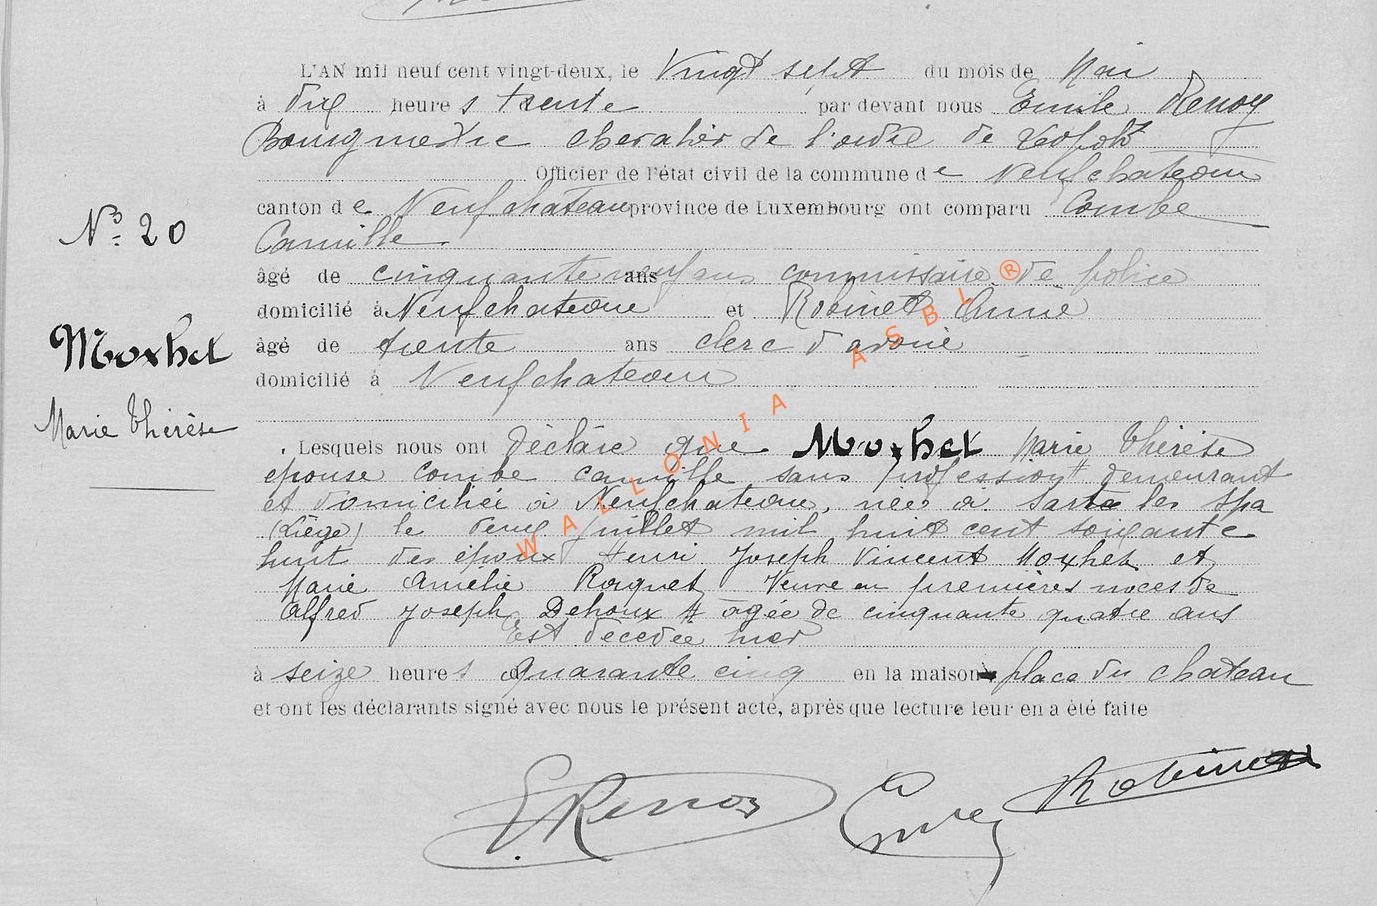 L'AN mil neuf cent vingt-deux, le Vingt sept du mois de Mai
à dix heures trente par devant nous Emile Renoy
Bourgmestre chevalier de l'ordre de
Officier de l'état civil de la commune de Neufchateau
canton de Neufchateau province de Luxembourg ont comparu Combe
Camille
âgé de cinquante neuf ans ans commissaire de police
domicilié à Neufchateau et Robinet Anne
âgé de trente ans clerc d'avoué
domicilié à Neufchateau
N° 20
Moxhet
Marie Thérèse
Lesquels nous ont déclaré que Moxhet Marie Thérèse
épouse Combe Camille sans profession # demeurant
et domiciliée à Neufchateau, née à Sart les Spa
(Liège) le deux Juillet mil huit cent soixante
huit des époux Henri Joseph Vincent Moxhet et
Marie Amélie Roquet Veuve en premières noces de
Alfred Joseph Dehoux # agée de cinquante quatre ans
Est décédée hier
à seize heures quarante cinq en la maison place du chateau
et ont les déclarants signé avec nous le présent acte, après que lecture leur en a été faite
ERenoy Combe Robinet
WALLONIA ASBL ®